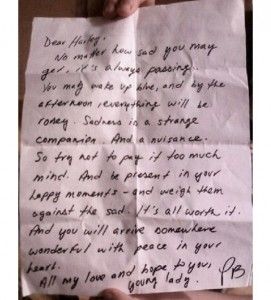 Dear Harley,
No matter how sad you may
get, it's always passing.
You may wake up blue, and by the
afternoon everything will be
roney. Sadness is a strange
companion. And a nuisance.
So try not to pay it too much
mind. And be present in your
happy moments - and weigh them
against the sad. It's all worth it.
And you will arrive somewhere
wonderful with peace in your
heart.
All my love and hope to you,
young lady. PB